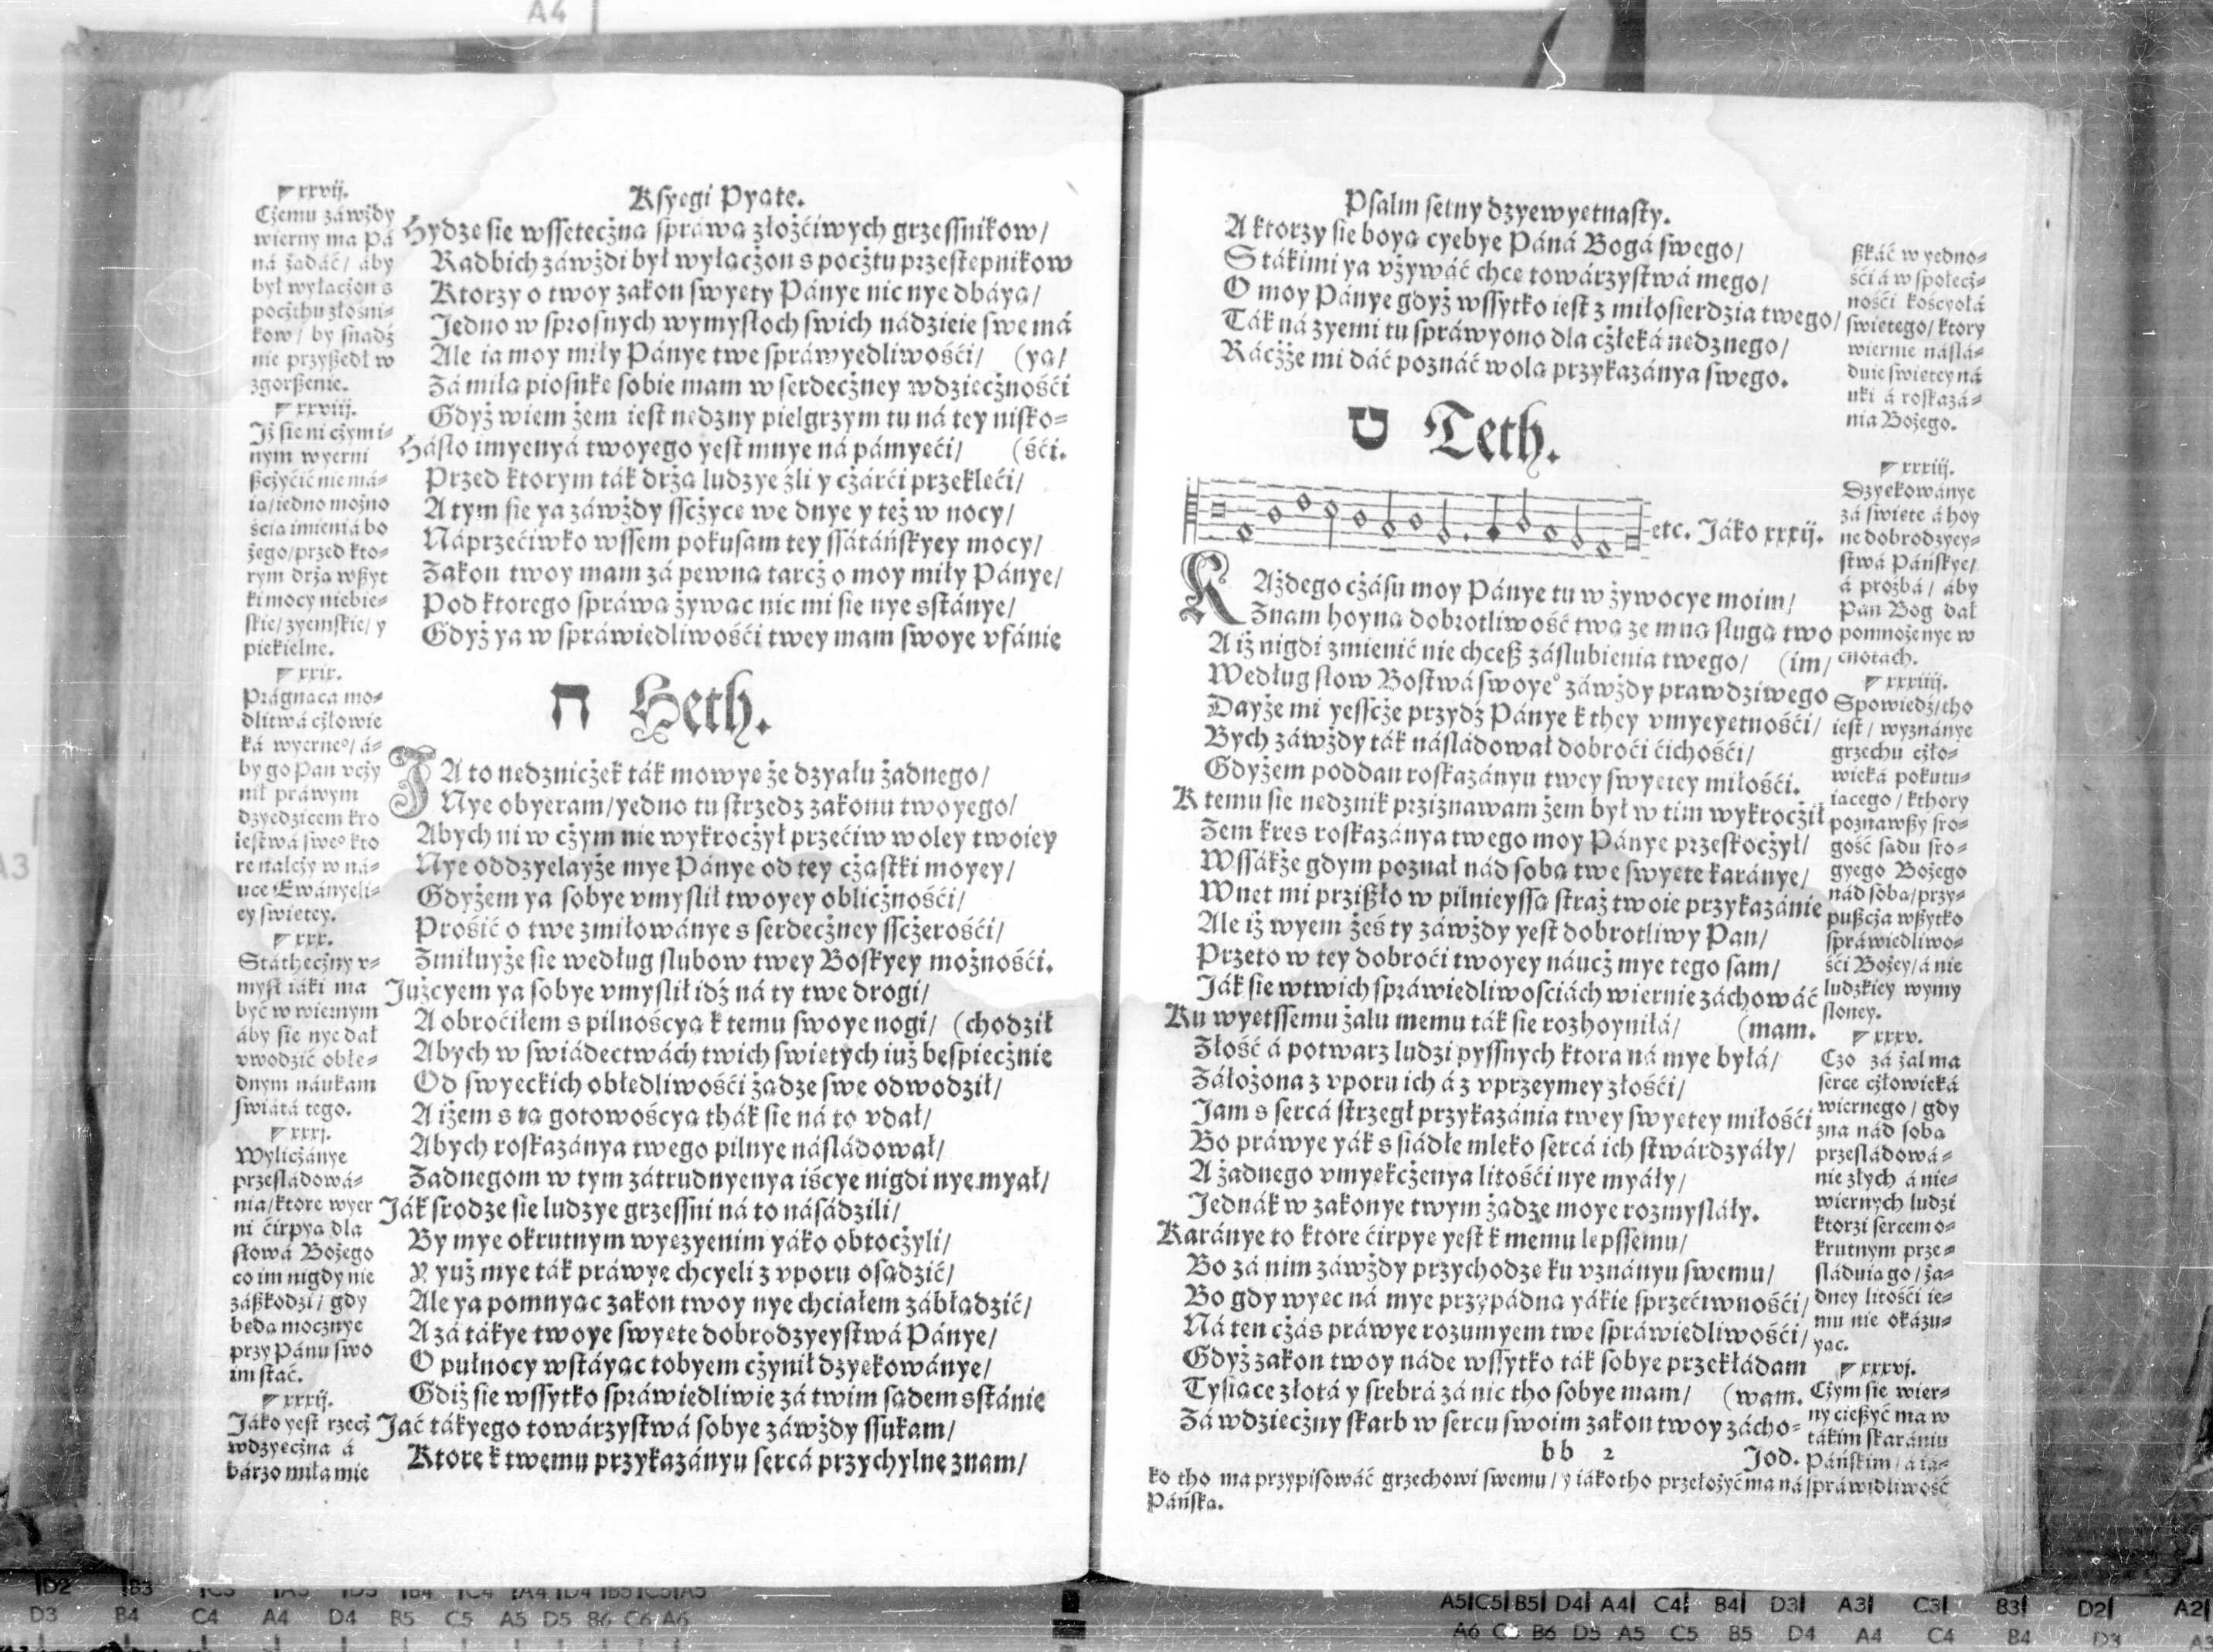 Ksyegi Pyate.
▼ xxvij.
Cżemu záwżdy
wierny ma Pá
ná żadáć/ áby
był wyłacżon s
pocżthu złosni-
kow/ by snadź
nie przyßedł w
zgorßenie.
▼ xxviij.
Iż sie ni cżym i-
nym wyerni
ßcżyćić nie má-
ia/iedno możno
ścia imieniá bo
żego/przed kto-
rym drża wßyt
ki mocy niebie-
skie/zyemskie/ y
piekielne.
▼ xxix.
Prágnaca mo-
dlitwá cżłowie
ká wyerne°/ á-
by go Pan vcży
nił práwym
dzyedzicem kro
lestwá swe° kto
re należy w ná-
uce Ewányeli-
ey swietey.
▼ xxx.
Státhecżny v-
mysł iáki ma
być w wiernym
áby sie nye dał
vwodzić obłe-
dnym náukam
swiátá tego.
▼ xxxj.
Wylicżánye
przesládowá-
nia/ktore wyer
ni ćirpya dla
słowá Bożego
co im nigdy nie
záßkodzi/ gdy
beda mocżnye
przy Pánu swo
im stać.
▼ xxxij.
Jáko yest rzecż
wdzyecżna á
bárzo miła mie
Hydze sie wssetecżna spráwa złożćiwych grzessnikow/
Radbich záwżdi był wyłacżon s pocżtu przestepnikow
Ktorzy o twoy zakon swyety Pánye nic nye dbáya/
Jedno w sprosnych wymysłoch swich nádzieie swe má
Ale ia moy miły Pánye twe spráwyedliwośći/ (ya/
Zá miła piosnke sobie mam w serdecżney wdziecżnośći
Gdyż wiem żem iest nedzny pielgrzym tu ná tey nisko-
Hásło imyenyá twoyego yest mnye ná pámyeći/ (śći.
Przed ktorym ták drża ludzye źli y cżárći przekleći/
A tym sie ya záwżdy sscżyce we dnye y też w nocy/
Náprzećiwko wssem pokusam tey ssátáńskyey mocy/
Zakon twoy mam zá pewna tarcż o moy miły Pánye/
Pod ktorego spráwa żywac nic mi sie nye sstánye/
Gdyż ya w spráwiedliwośći twey mam swoye vfánie
ח Heth.
JA to nedznicżek ták mowye że dzyału żadnego/
Nye obyeram/yedno tu strzedz zakonu twoyego/
Abych ni w cżym nie wykrocżył przećiw woley twoiey
Nye oddzyelayże mye Pánye od tey cżastki moyey/
Gdyżem ya sobye vmyslił twoyey oblicżnośći/
Prośić o twe zmiłowánye s serdecżney sscżerośći/
Zmiłuyże sie według slubow twey Boskyey możnośći.
Jużcyem ya sobye vmyslił idź ná ty twe drogi/
A obroćiłem s pilnośćya k temu swoye nogi/ (chodził
Abych w swiádectwách twich swietych iuż bespiecżnie
Od swyeckich obłedliwośći żadze swe odwodził/
A iżem s ta gotowośćya thák sie ná to vdał/
Abych roskazánya twego pilnye násládował/
Zadnegom w tym zátrudnyenya iśćye nigdi nye myał/
Ják srodze sie ludzye grzessni ná to násádzili/
By mye okrutnym wyezyenim yáko obtocżyli/
Y yuż mye ták práwye chcyeli z vporu osadzić/
Ale ya pomnyac zakon twoy nye chciałem zábładzić/
A zá tákye twoye swyete dobrodzyeystwá Pánye/
O pułnocy wstáyac tobyem cżynił dzyekowánye/
Gdiż sie wssytko spráwiedliwie zá twim sadem sstánie
Jać tákyego towárzystwá sobye záwżdy ssukam/
Ktore k twemu przykazányu sercá przychylne znam/
Psalm setny dzyewyetnasty.
A ktorzy sie boya cyebye Páná Bogá swego/
S tákimi ya vżywáć chce towárzystwá mego/
O moy Pánye gdyż wssytko iest z miłosierdzia twego/
Ták ná zyemi tu spráwyono dla cżłeká nedznego/
Rácżże mi dáć poznáć wola przykazánya swego.
ט Teth.
etc. Jáko xxxij.
KAżdego cżásu moy Pánye tu w żywocye moim/
Znam hoyna dobrotliwość twa ze mna sługa two
A iż nigdi zmienić nie chceß záslubienia twego/ (im/
Według słow Bostwá swoye° záwżdy prawdziwego
Dayże mi yesscże przydź Pánye k they vmyeyetnośći/
Bych záwżdy ták násládował dobroći ćichośći/
Gdyżem poddan roskazányu twey swyetey miłośći.
K temu sie nedznik prziznawam żem był w tim wykrocżił
Zem kres roskazánya twego moy Pánye przeskocżył/
Wssákże gdym poznał nád soba twe swyete karánye/
Wnet mi przißło w pilnieyssa straż twoie przykazánie
Ale iż wyem żeś ty záwżdy yest dobrotliwy Pan/
Przeto w tey dobroći twoyey náucż mye tego sam/
Ják sie w twich spráwiedliwosciách wiernie záchowáć
Ku wyetssemu żalu memu ták sie rozhoyniłá/ (mam.
Złość á potwarz ludzi pyssnych ktora ná mye byłá/
Záłożona z vporu ich á z vprzeymey złośći/
Jam s sercá strzegł przykazánia twey swyetey miłośći
Bo práwye yák s siádłe mleko sercá ich stwárdzyáły/
A żadnego vmyekcżenya litośći nye myáły/
Jednák w zakonye twym żadze moye rozmysláły.
Karánye to ktore ćirpye yest k memu lepssemu/
Bo zá nim záwżdy przychodze ku vznányu swemu/
Bo gdy wyec ná mye przypádna yákie sprzećiwnośći/
Ná ten cżás práwye rozumyem twe spráwiedliwośći/
Gdyż zakon twoy náde wssytko ták sobye przekłádam
Tysiace złotá y srebrá zá nic tho sobye mam/ (wam.
Zá wdziecżny skarb w sercu swoim zakon twoy zácho-
bb 2 Jod.
ßkáć w yedno-
śći á w społecż-
nośći kośćyołá
swietego/ ktory
wiernie násłá-
duie swietey ná
uki á roskazá-
nia Bożego.
▼ xxxiij.
Dzyekowánye
zá swiete á hoy
ne dobrodzyey-
stwá Páńskye/
á prozbá/ áby
Pan Bog dał
pomnożenye w
cnotach.
▼ xxxiiij.
Spowiedź/tho
iest/ wyznánye
grzechu cżło-
wieká pokutu-
iacego/ kthory
poznawßy sro-
gość sadu sro-
gyego Bożego
nád soba/przy-
pußcża wßytko
spráwiedliwo-
śći Bożey/á nie
ludzkiey wymy
słoney.
▼ xxxv.
Czo zá żal ma
serce cżłowieká
wiernego/ gdy
zna nád soba
przesládowá-
nie złych á nie-
wiernych ludzi
ktorzi sercem o-
krutnym prze-
śláduia go/ ża-
dney litośći ie-
mu nie okázu-
yac.
▼ xxxvj.
Cżym sie wier-
ny cießyć ma w
tákim skarániu
Páńskim/ á iá-
ko tho ma przypisowáć grzechowi swemu/ y iáko tho przełożyć ma ná spráwidliwość
Páńska.